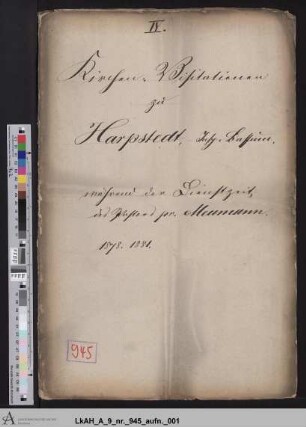 IV.
Kirchen-Visitationen
zu
Harpstedt, Insp. Bassum,
während der Dienstzeit
des Pastors pr. Meumann.
1878. 1881.
945
LkAH_A_9_nr._945_aufn._001